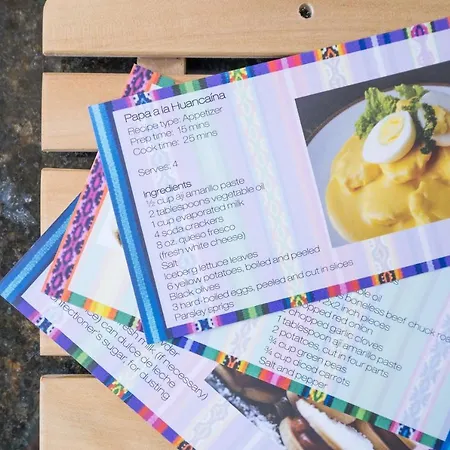 Papa a la Huancaína
Recipe type: Appetizer
Prep time: 15 mins
Cook time: 25 mins
Serves: 4
Ingredients
½ cup aji amarillo paste
2 tablespoons vegetable oil
1 cup evaporated milk
4 soda crackers
8 oz. queso fresco
(fresh white cheese)
Salt
Iceberg lettuce leaves
6 yellow potatoes, boiled and peeled
Black olives
3 hard-boiled eggs, peeled and cut in slices
Parsley sprigs
oil
boneless beef chuck
2x2 inch pieces
chopped red onion
chopped garlic cloves
1 tablespoon aji amarillo paste
2 potatoes, cut in four parts
¾ cup green peas
¾ cup diced carrots
Salt and pepper
milk (if necessary)
can dulce de leche
confectioner's sugar, for dusting